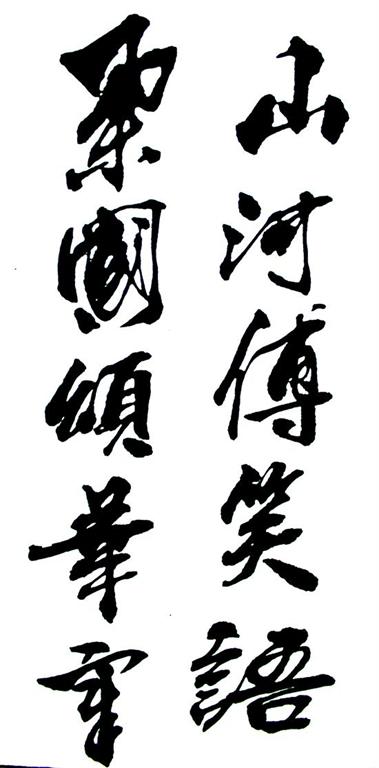 山河傳笑語
國頌華章